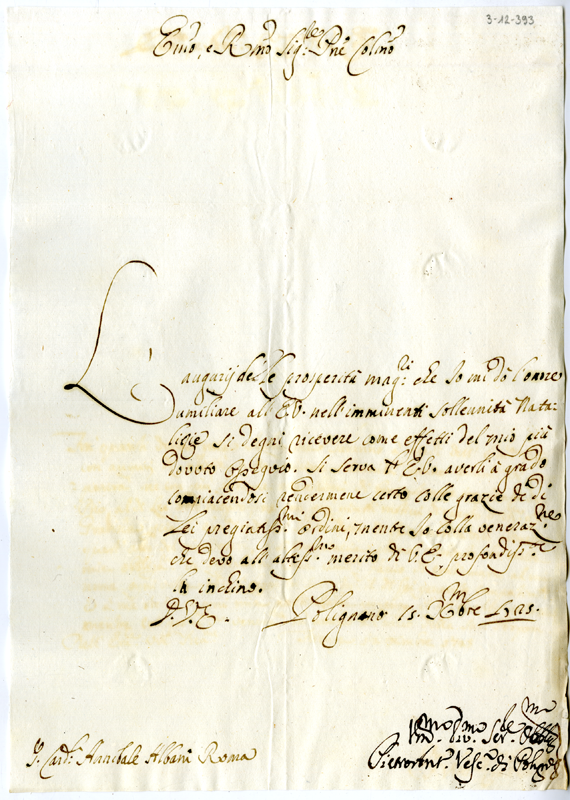 3-12-393
Emo, e Rmo Sig.re Pne Colmo
L'augurij delle prosperità mag.ri che Io mi dò l'onore
umiliare all'E.V. nell'imminenti sollennità Nata-
lizie si degni ricevere come effetti del mio più
dovoto Ossequio. Si serva l'E.V. averli à grado
compiacendosi rendermene certo colle grazie di di
Lei pregiatiss.mi Ordini, mente Io colla veneraz.ne
che devo all'altiss.mo merito di V.E. profondiss.te
inchino.
D.V.E. Polignano 15. Xmbre 1725.
Vmo Dmo Ser.
Pietroant. Vesc. di Polig
S. Card. Annibale Albani Roma